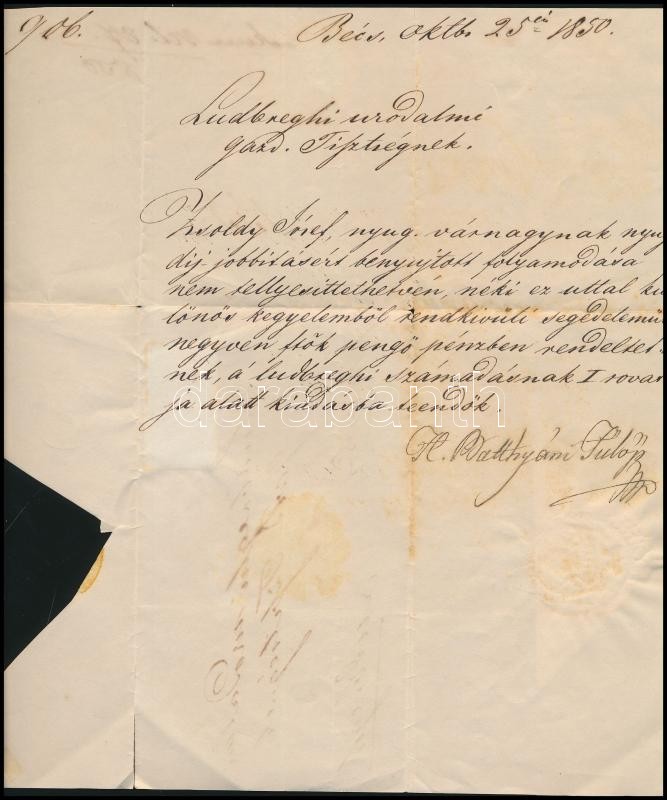 906.
Bécs, oktb. 25én 1850.
Ludbreghi urodalmi
gazd. Tisztségnek.
Zsoldy Jósef, nyug. várnagynak nyug
díj jobbitásért benyujtott folyamodása
nem tellyesittethetvén, néki ez uttal kü
lönös kegyelemböl rendkivüli segedelemül
negyven ftok pengö penzben rendeltet
nek, a ludbreghi számadásnak I rovat
ja alatt kiadásba teendök.
H. Batthyáni Fülöp
darabanth